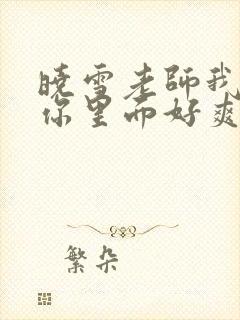 曉雪老師我
你里面好爽
繁朵